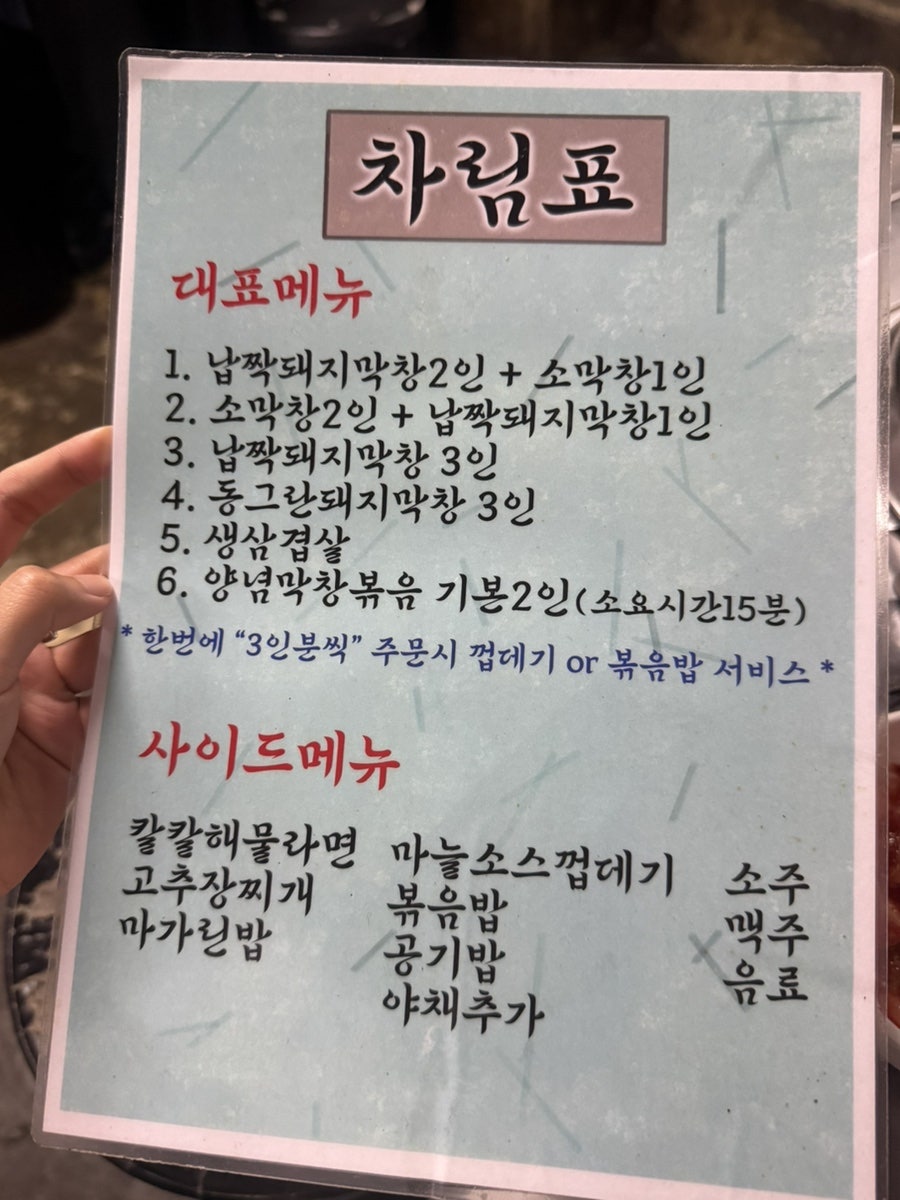 차림표
대표메뉴
1. 납짝돼지막창2인 + 소막창1인
2. 소막창2인 + 납짝돼지막창1인
3. 납짝돼지막창 3인
4. 동그란돼지막창 3인
5. 생삼겹살
6. 양념막창볶음 기본2인(소요시간15분)
* 한번에 “3인분씩” 주문시 껍데기 or 볶음밥 서비스 *
사이드메뉴
칼칼해물라면
고추장찌개
마가린밥
마늘소스껍데기
볶음밥
공기밥
야채추가
소주
맥주
음료